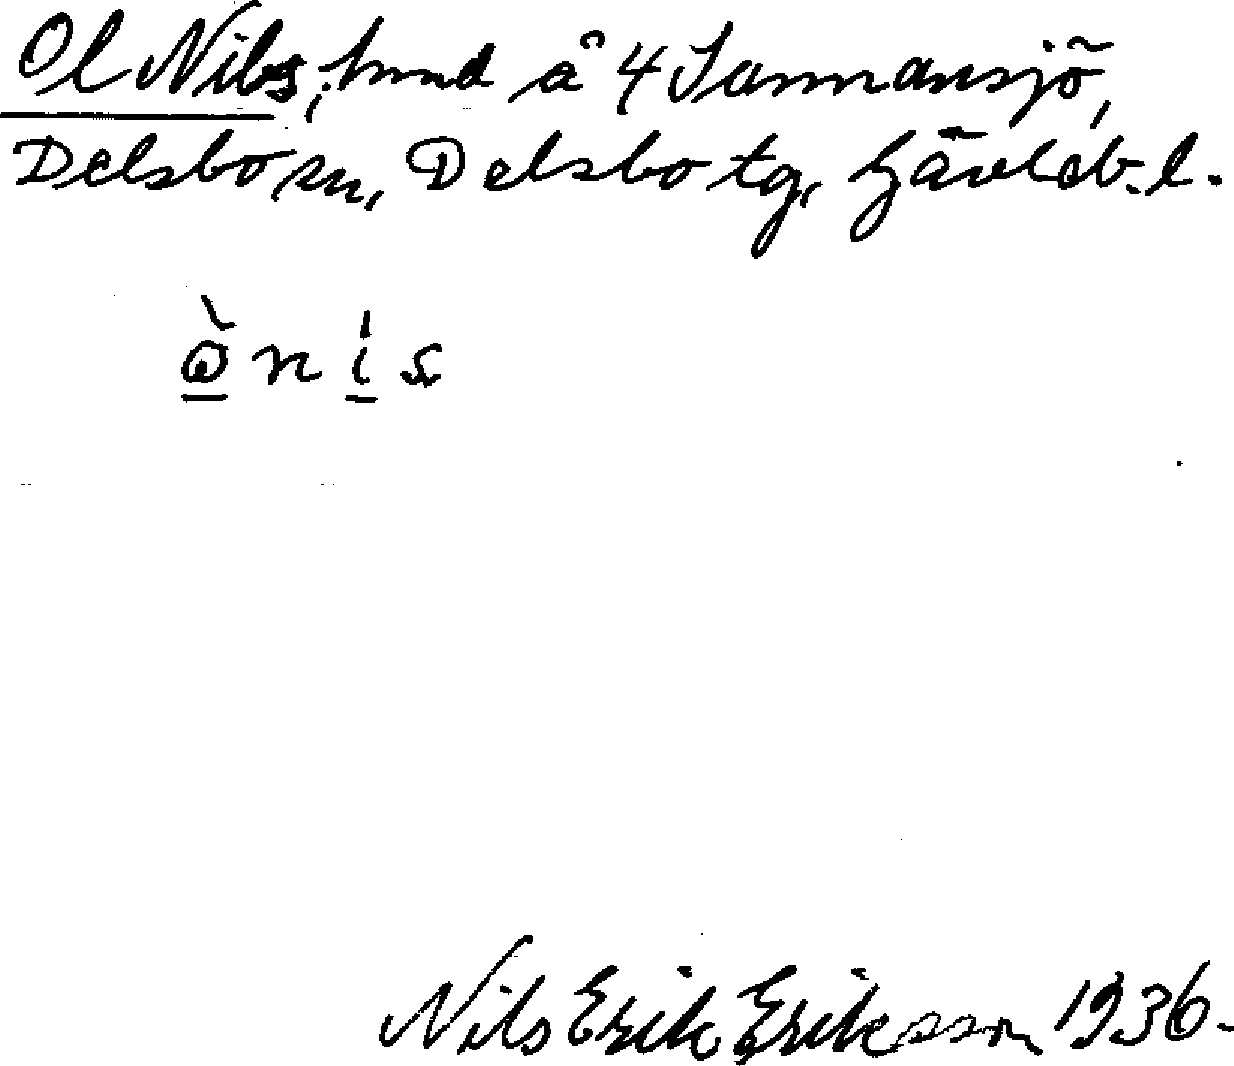 Ol Nils, hmd å 4 Sannansjö,
Delsbo sn, Delsbo tg, Gävleb. l.
ònis
Nils Erik Eriksson 1936.